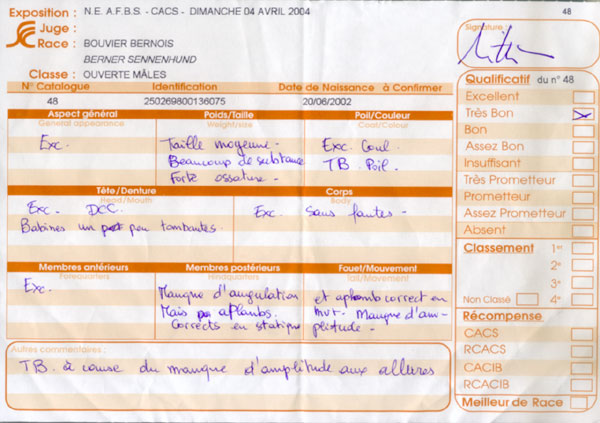 Exposition : N.E. A.F.B.S. - CACS - DIMANCHE 04 AVRIL 2004
48
Juge :
Race : BOUVIER BERNOIS
BERNER SENNENHUND
Classe : OUVERTE MÂLES
Signature :
N° Catalogue Identification Date de Naissance à Confirmer
48 250269800136075 20/06/2002
Aspect général Poids/Taille Poil/Couleur
General appearance Weight/size Coat/Colour
Exc. Taille moyenne - Exc. Coul.
Beaucoup de substance TB. Poil.
Forte ossature -
Tête/Denture Corps
Head/Mouth Body
Exc. DCC. Exc. Sans fautes -
Babines un peu tombantes.
Membres antérieurs Membres postérieurs Fouet/Mouvement
Forequarters Hindquarters Tail/Movement
Exc. Manque d'angulation et aplomb correct en
Mais aplombs. mvt. Manque d'am-
Corrects en statique plitude -
Autres commentaires :
TB. à cause du manque d'amplitude aux allures
Qualificatif du n° 48
Excellent
Très Bon
Bon
Assez Bon
Insuffisant
Très Prometteur
Prometteur
Assez Prometteur
Absent
Classement 1er
2e
3e
Non Classé 4e
Récompense
CACS
RCACS
CACIB
RCACIB
Meilleur de Race